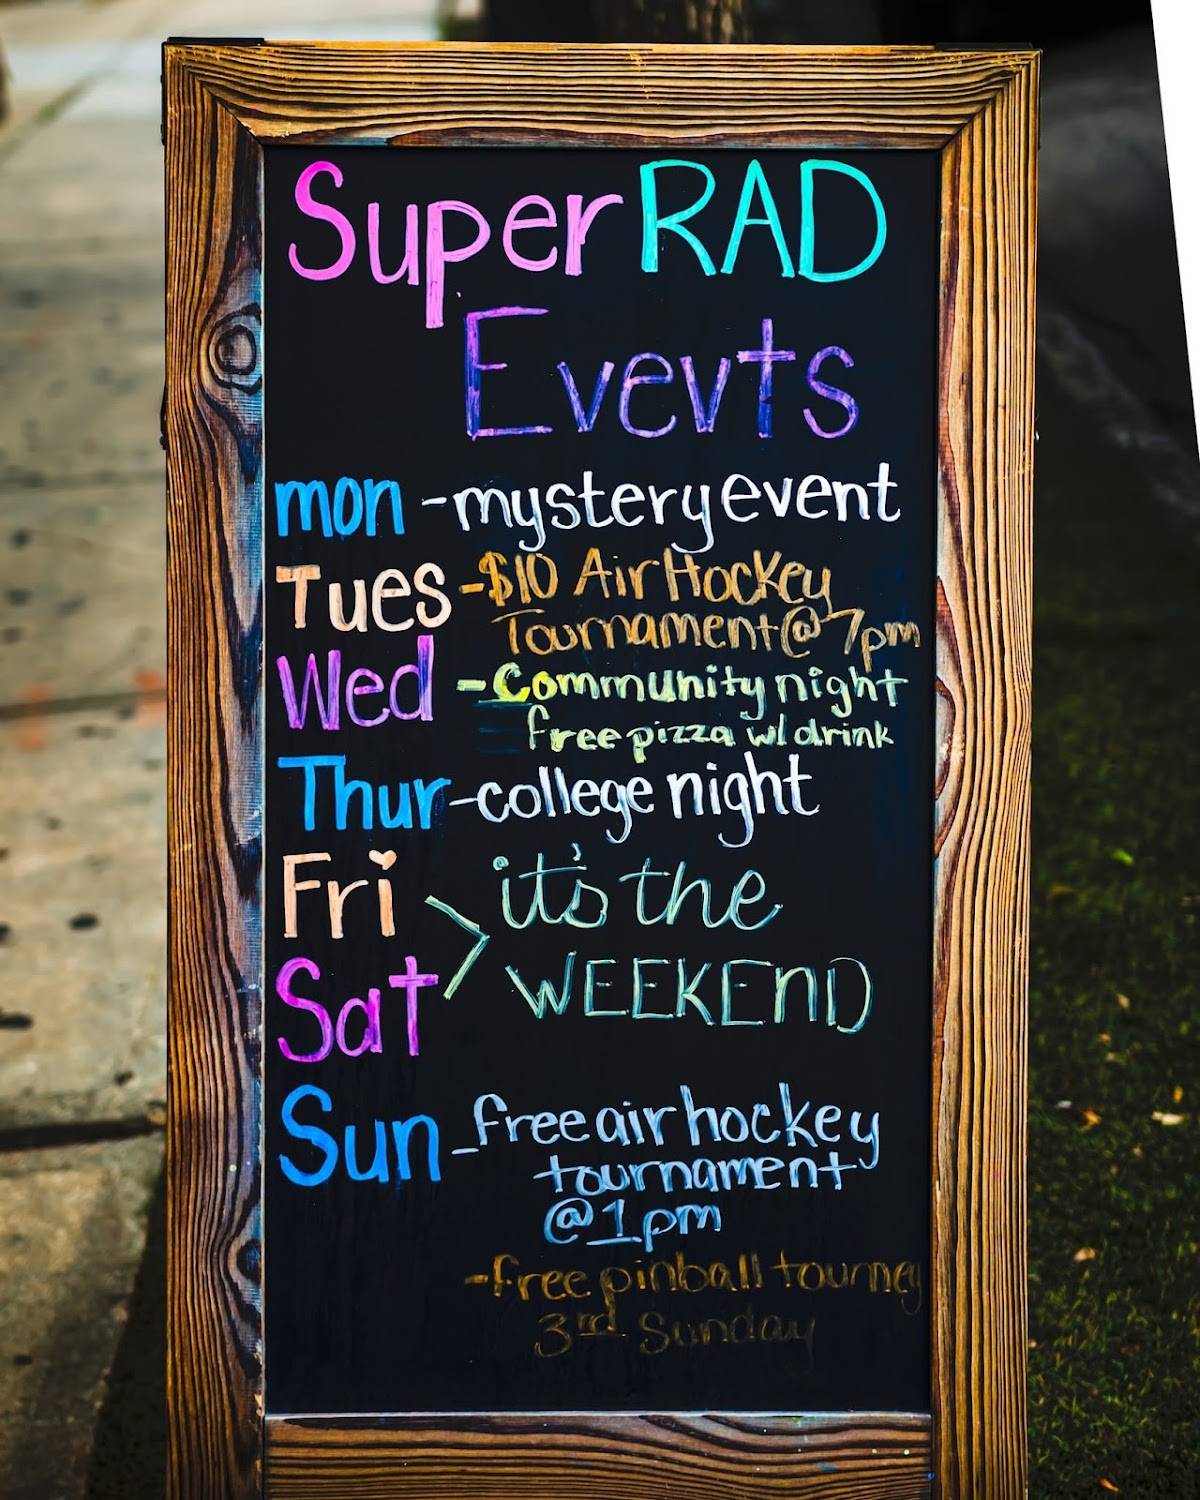 Super RAD
Events
mon - mystery event
Tues - $10 Air Hockey
Tournament @ 7pm
Wed - Community night
free pizza w/ drink
Thur - college night
Fri
it's the
WEEKEND
Sat
Sun - free air hockey
tournament
@ 1pm
- free pinball tourney
3rd Sunday